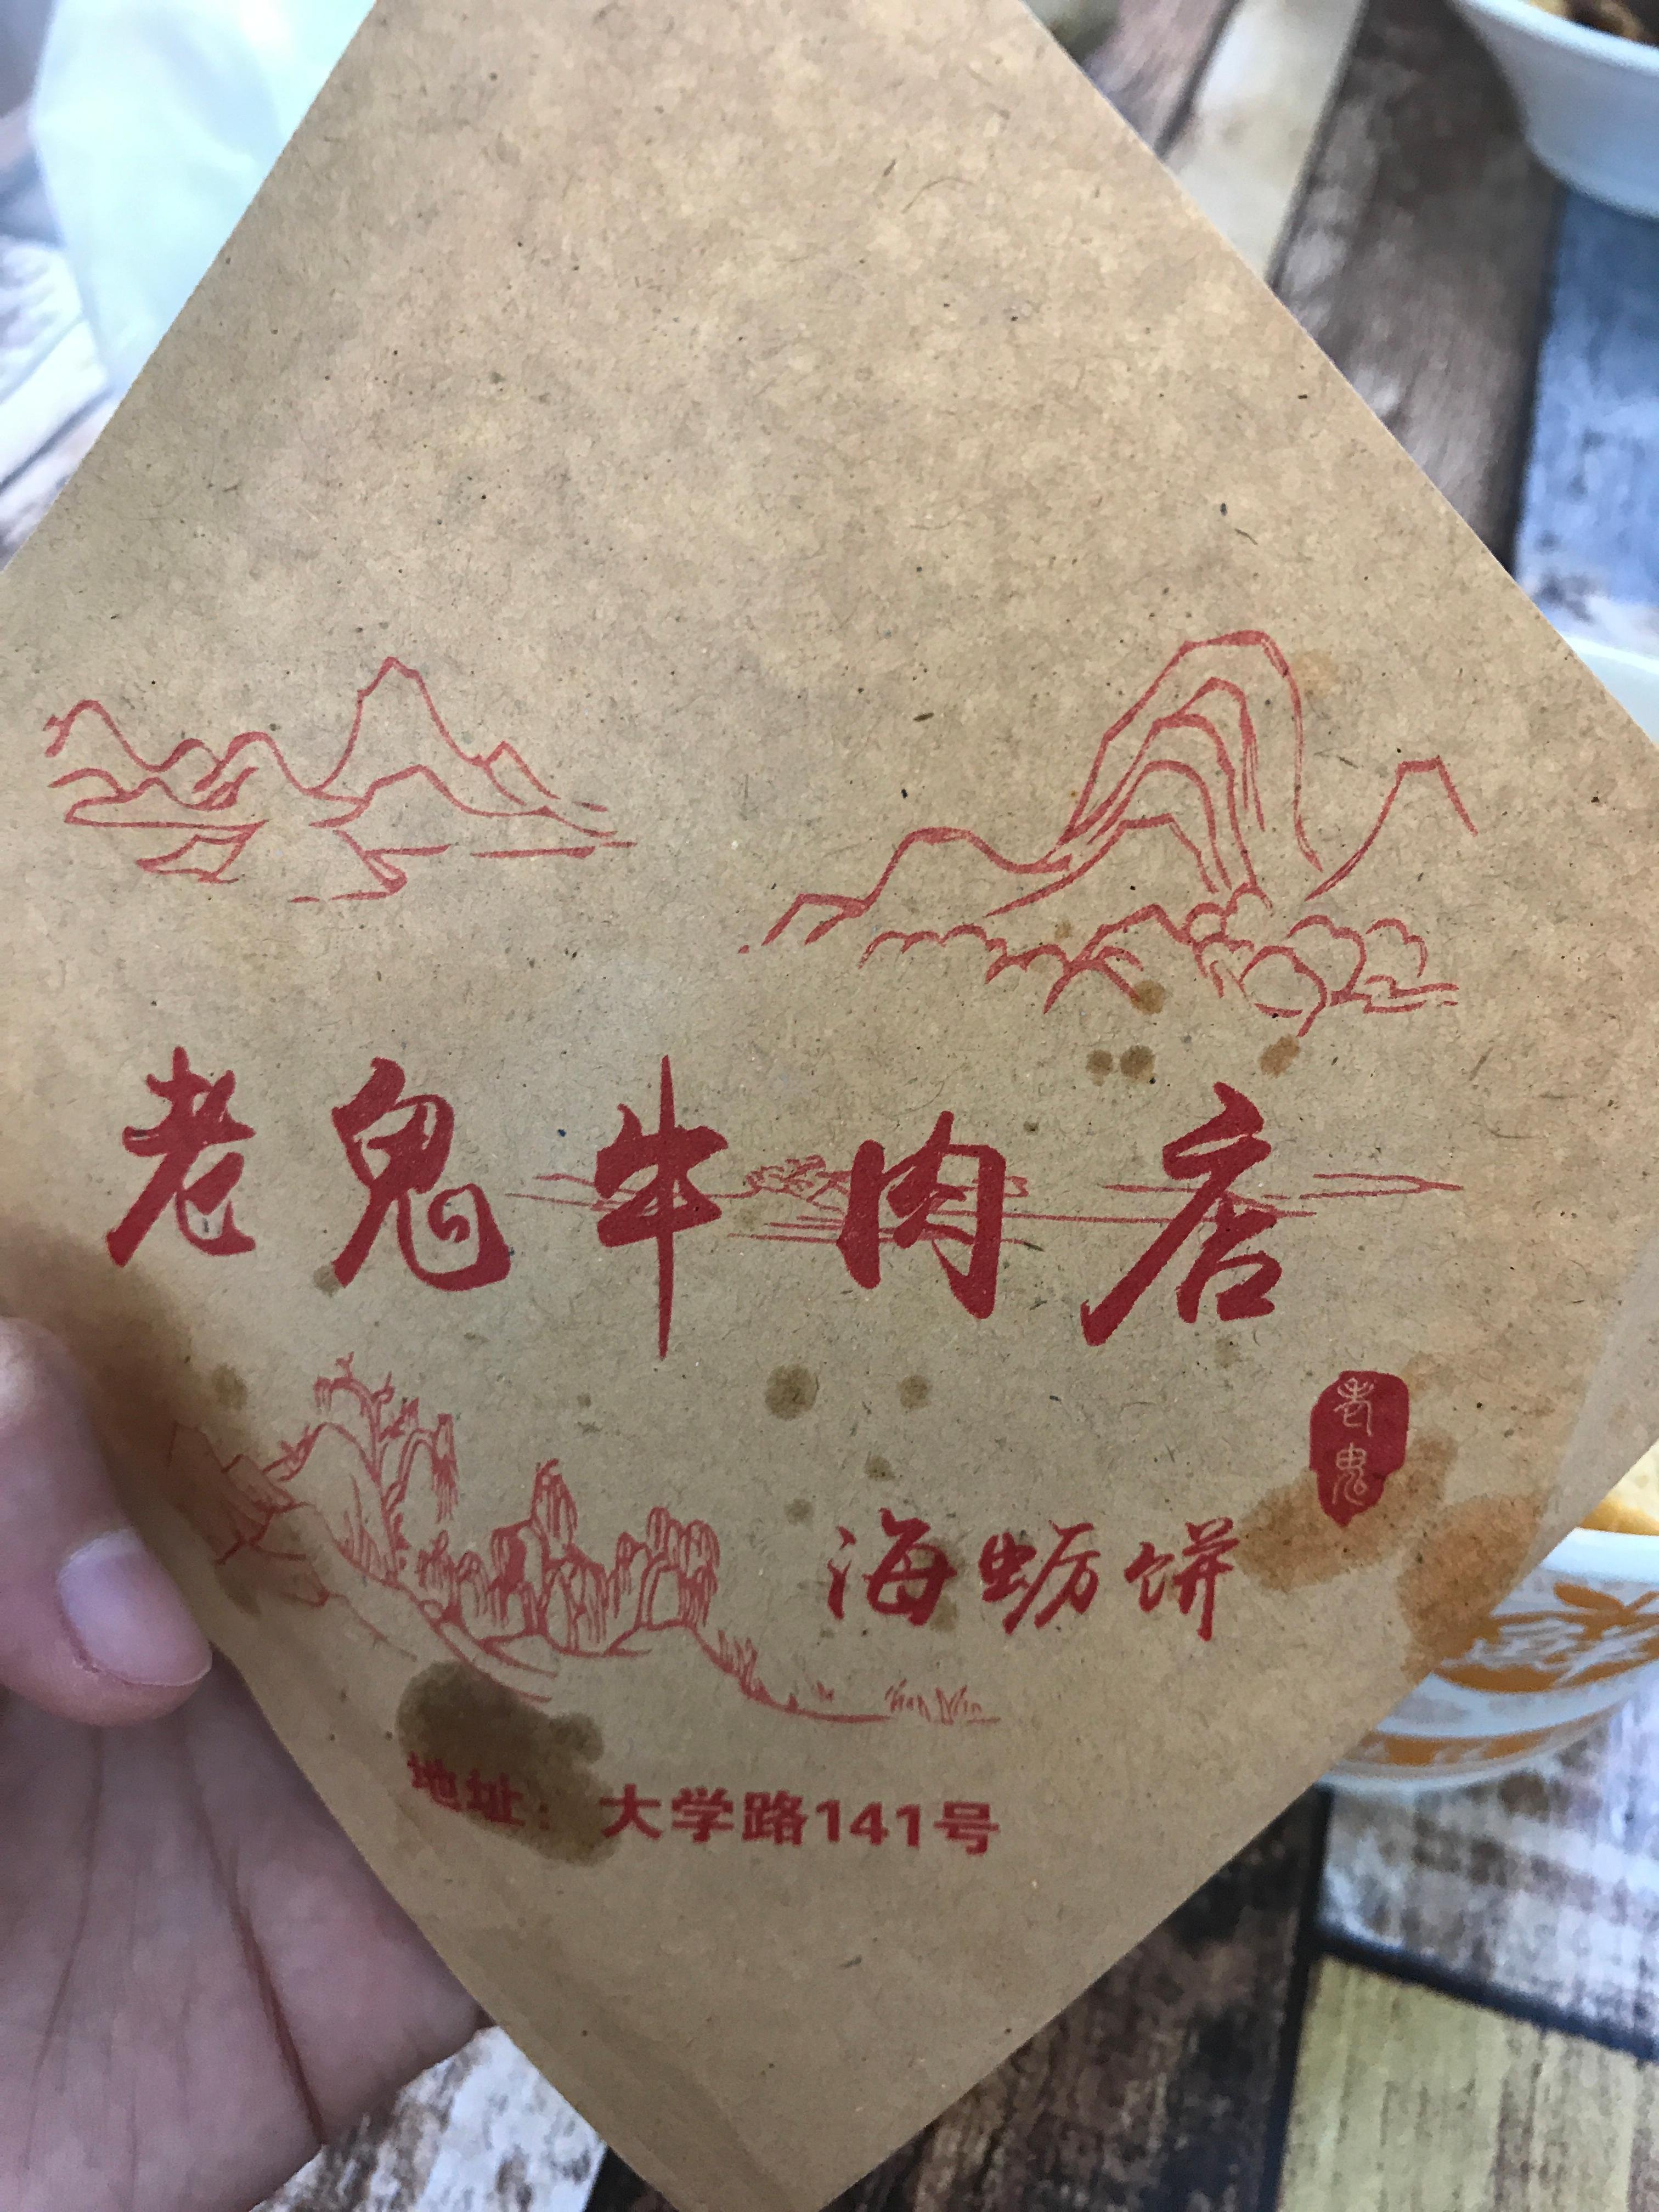 老鬼牛肉店
老鬼
海蛎饼
地址：大学路141号